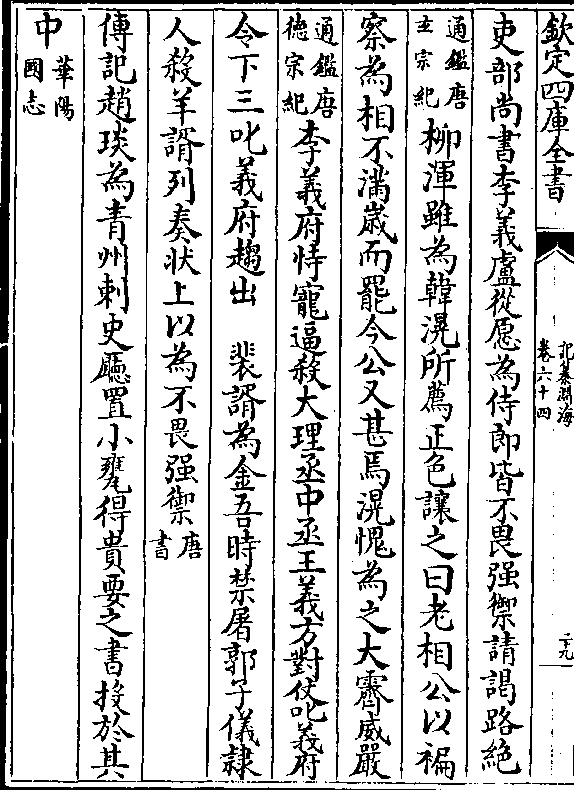 欽定四庫全書
記纂淵海
卷六十四
二十九
吏部尚書李義盧從愿為侍郎皆不畏强禦請謁路絶
通鑑唐
玄宗紀
柳渾雖為韓滉所薦正色讓之曰老相公以褊
察為相不滿歲而罷今公又甚焉滉愧為之大霽威嚴
通鑑唐
德宗紀
李義府恃寵逼殺大理丞中丞王義方對仗叱義府
令下三叱義府趨出 裴諝為金吾時禁屠郭子儀隷
人殺羊諝列奏狀上以為不畏强禦
唐
書
傳記趙琰為青州刺史廳置小甕得貴要之書投於其
中
華陽
國志